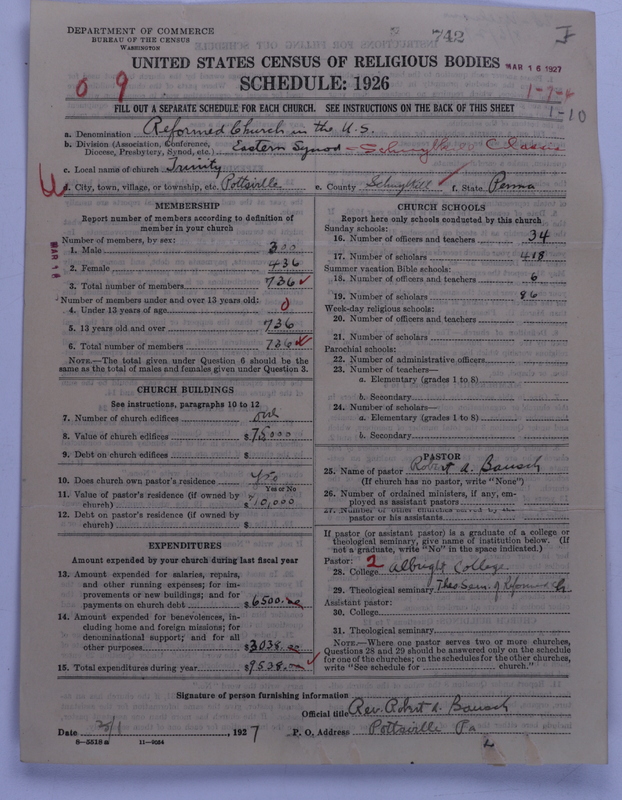 DEPARTMENT OF COMMERCE
BUREAU OF THE CENSUS
WASHINGTON
742
I
UNITED STATES CENSUS OF RELIGIOUS BODIES
MAR 16 1927
SCHEDULE: 1926
0 9
1-7-4
1-10
FILL OUT A SEPARATE SCHEDULE FOR EACH CHURCH. SEE INSTRUCTIONS ON THE BACK OF THIS SHEET
a. Denomination Reformed Church in the U.S.
b. Division (Association, Conference, Diocese, Presbytery, Synod, etc.) Eastern Synod - Schuylkill Classis
c. Local name of church Trinity
d. City, town, village, or township, etc. Pottsville e. County Schuylkill f. State Penna
MEMBERSHIP
Report number of members according to definition of
member in your church
Number of members, by sex:
1. Male 300
2. Female 436
3. Total number of members 736
Number of members under and over 13 years old:
4. Under 13 years of age 0
5. 13 years old and over 736
6. Total number of members 736
NOTE.—The total given under Question 6 should be the
same as the total of males and females given under Question 3.
CHURCH BUILDINGS
See instructions, paragraphs 10 to 12
7. Number of church edifices one
8. Value of church edifices $75000
9. Debt on church edifices $
10. Does church own pastor's residence yes
Yes or No
11. Value of pastor's residence (if owned by
church) $10,000
12. Debt on pastor's residence (if owned by
church) $
EXPENDITURES
Amount expended by your church during last fiscal year
13. Amount expended for salaries, repairs,
and other running expenses; for im-
provements or new buildings; and for
payments on church debt $6500.00
14. Amount expended for benevolences, in-
cluding home and foreign missions; for
denominational support; and for all
other purposes $3038.00
15. Total expenditures during year $9538.00
CHURCH SCHOOLS
Report here only schools conducted by this church
Sunday schools:
16. Number of officers and teachers 34
17. Number of scholars 418
Summer vacation Bible schools:
18. Number of officers and teachers 6
19. Number of scholars 86
Week-day religious schools:
20. Number of officers and teachers
21. Number of scholars
Parochial schools:
22. Number of administrative officers
23. Number of teachers—
a. Elementary (grades 1 to 8)
b. Secondary
24. Number of scholars—
a. Elementary (grades 1 to 8)
b. Secondary
PASTOR
25. Name of pastor Robert A. Bausch
(If church has no pastor, write "None")
26. Number of ordained ministers, if any, em-
ployed as assistant pastors
27. Number of other churches served by the
pastor or his assistants
If pastor (or assistant pastor) is a graduate of a college or
theological seminary, give name of institution below. (If
not a graduate, write "No" in the space indicated.)
Pastor:
28. College 2 Albright College
29. Theological seminary Theo. Sem. of Reformed Ch.
Assistant pastor:
30. College
31. Theological seminary
NOTE.—Where one pastor serves two or more churches,
Questions 28 and 29 should be answered only on the schedule
for one of the churches; on the schedules for the other churches,
write "See schedule for church."
Signature of person furnishing information
Official title Rev. Robert A. Bausch
Date , 1927 P. O. Address Pottsville Pa
8—5518a 11—9264